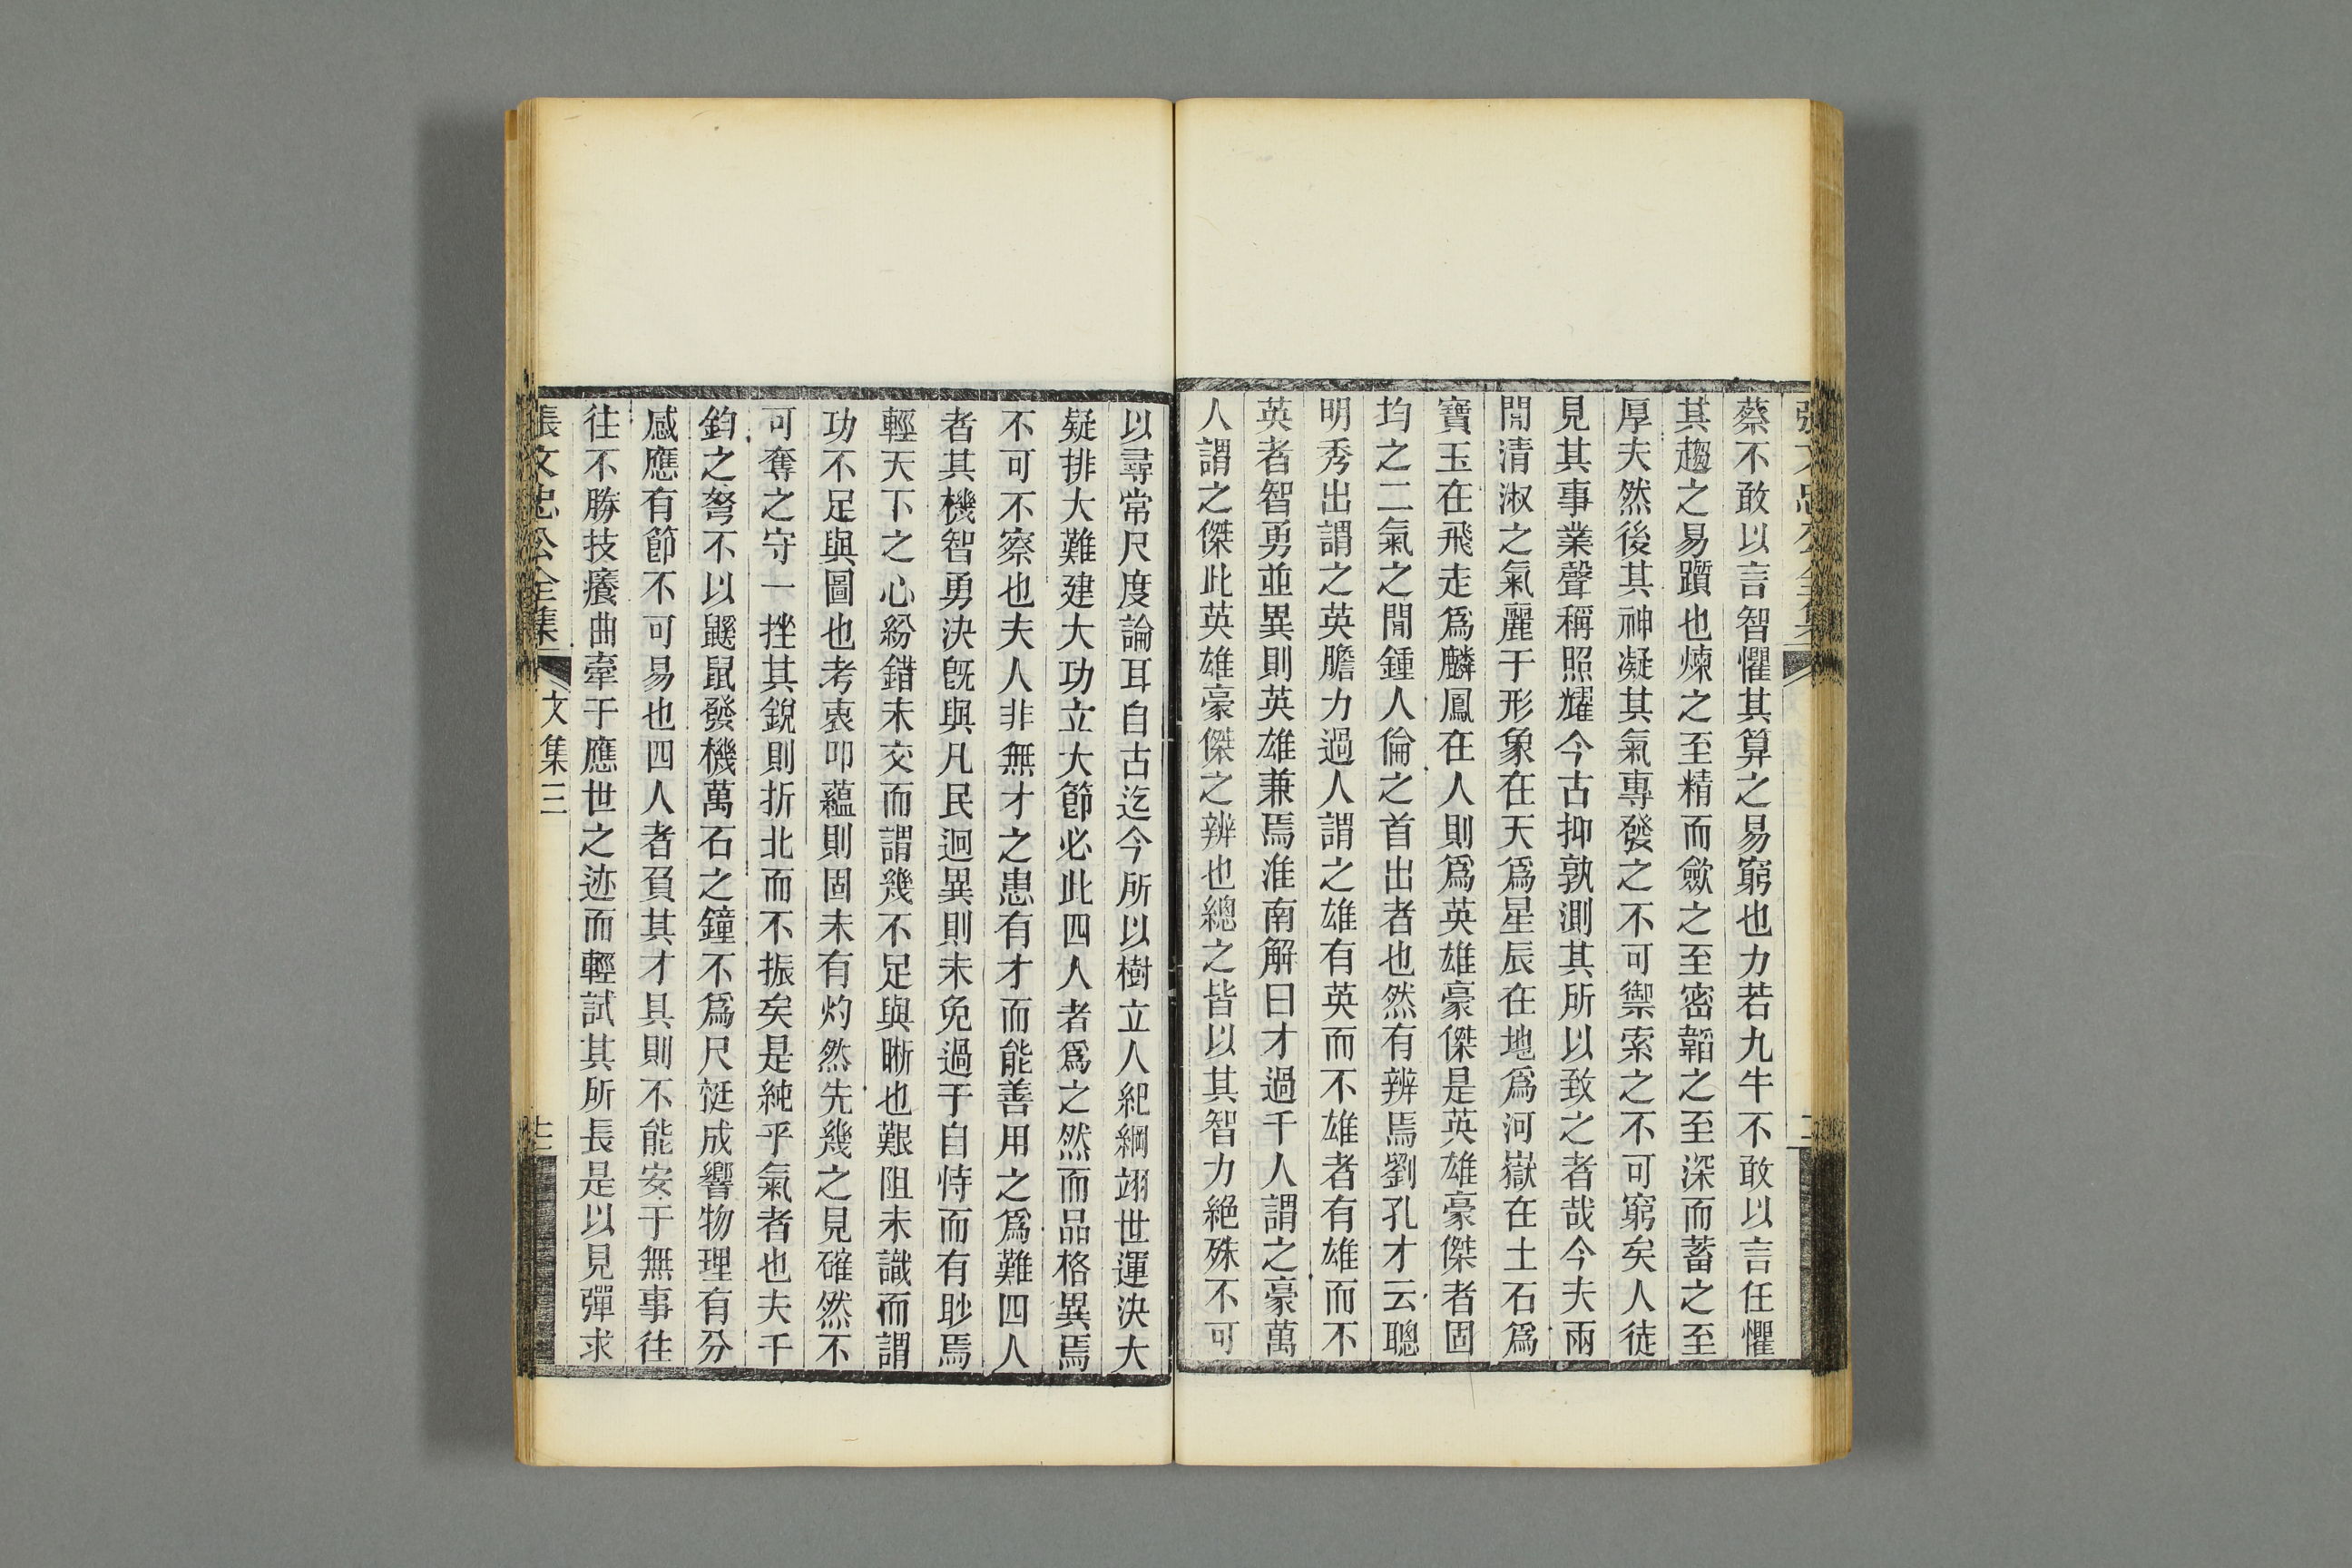 張文忠公全集
蔡不敢以言智懼其算之易窮也力若九牛不敢以言任懼
其趨之易躓也煉之至精而歛之至密韜之至深而蓄之至
厚夫然後其神凝其氣專發之不可禦索之不可窮矣人徒
見其事業聲稱照耀今古抑孰測其所以致之者哉今夫兩
閒清淑之氣麗于形象在天爲星辰在地爲河嶽在土石爲
寶玉在飛走爲麟鳳在人則爲英雄豪傑是英雄豪傑者固
均之二氣之閒鍾人倫之首出者也然有辨焉劉孔才云聰
明秀出謂之英膽力過人謂之雄有英而不雄者有雄而不
英者智勇並異則英雄兼焉淮南解曰才過千人謂之豪萬
人謂之傑此英雄豪傑之辨也總之皆以其智力絕殊不可
以尋常尺度論耳自古迄今所以樹立人紀綱翊世運決大
疑排大難建大功立大節必此四人者爲之然而品格異焉
不可不察也夫人非無才之患有才而能善用之爲難四人
者其機智勇決旣與凡民迥異則未免過于自恃而有眇焉
輕天下之心紛錯未交而謂幾不足與晰也艱阻未識而謂
功不足與圖也考衷叩蘊則固未有灼然先幾之見確然不
可奪之守一挫其銳則折北而不振矣是純乎氣者也夫千
鈞之弩不以鼷鼠發機萬石之鐘不爲尺莛成響物理有分
感應有節不可易也四人者負其才具則不能安于無事往
往不勝技癢曲牽于應世之迹而輕試其所長是以見彈求
張文忠公全集
文集三